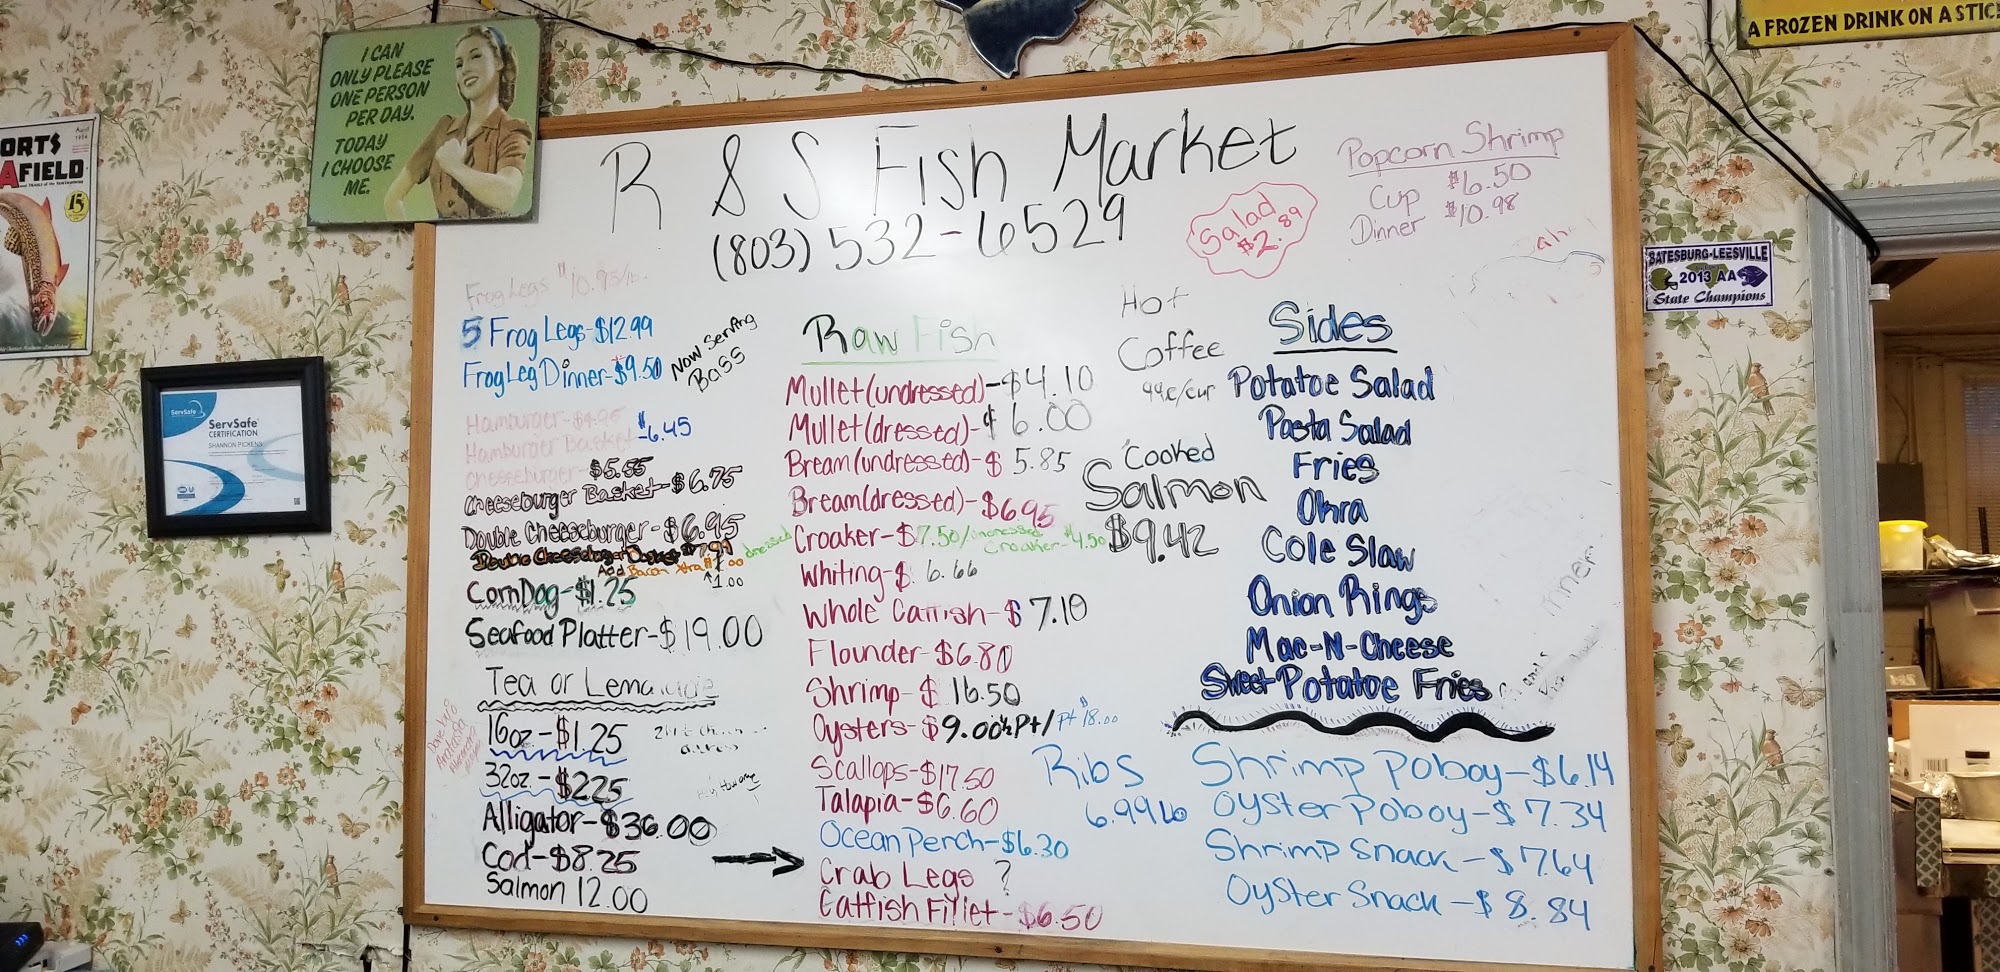 I CAN
ONLY PLEASE
ONE PERSON
PER DAY.
TODAY
I CHOOSE
ME.
ORTS
AFIELD
April
15
ServSafe
ServSafe
CERTIFICATION
SHANNON PICKENS
A FROZEN DRINK ON A STIC
BATESBURG-LEESVILLE
2013 AA
State Champions
R & S Fish Market
(803) 532-6529
Salad
$2.89
Popcorn Shrimp
Cup $6.50
Dinner $10.98
Frog Legs $10.95/lb
5 Frog Legs-$12.99
Frog Leg Dinner-$9.50
Now Serving
Bass
Hamburger-$4.95
Hamburger Basket $6.45
Cheeseburger-$5.55
Cheeseburger Basket-$6.75
Double Cheeseburger-$6.95
Double Cheeseburger Basket $7.99
Add Bacon Xtra $1.00
↑1.00
Corn Dog-$1.25
Seafood Platter-$19.00
Tea or Lemonade
16oz-$1.25
32oz.-$2.25
Alligator-$36.00
Cod-$8.25
Salmon 12.00
Raw Fish
Mullet(undressed)-$4.10
Mullet(dressed)-$6.00
Bream(undressed)-$5.85
Bream(dressed)-$6.95
dressed Croaker-$7.50/undressed
Croaker-$4.50
Whiting-$6.66
Whole Catfish-$7.10
Flounder-$6.80
Shrimp-$16.50
Oysters-$9.00½Pt/Pt $18.00
Scallops-$17.50
Talapia-$6.60
Ocean Perch-$6.30
Crab Legs ?
Catfish Fillet-$6.50
Hot
Coffee
99¢/cup
Cooked
Salmon
$9.42
Sides
Potatoe Salad
Pasta Salad
Fries
Okra
Cole Slaw
Onion Rings
Mac-N-Cheese
Sweet Potatoe Fries
Ribs
6.99lb
Shrimp Poboy-$6.14
Oyster Poboy-$7.34
Shrimp Snack-$7.64
Oyster Snack-$8.84